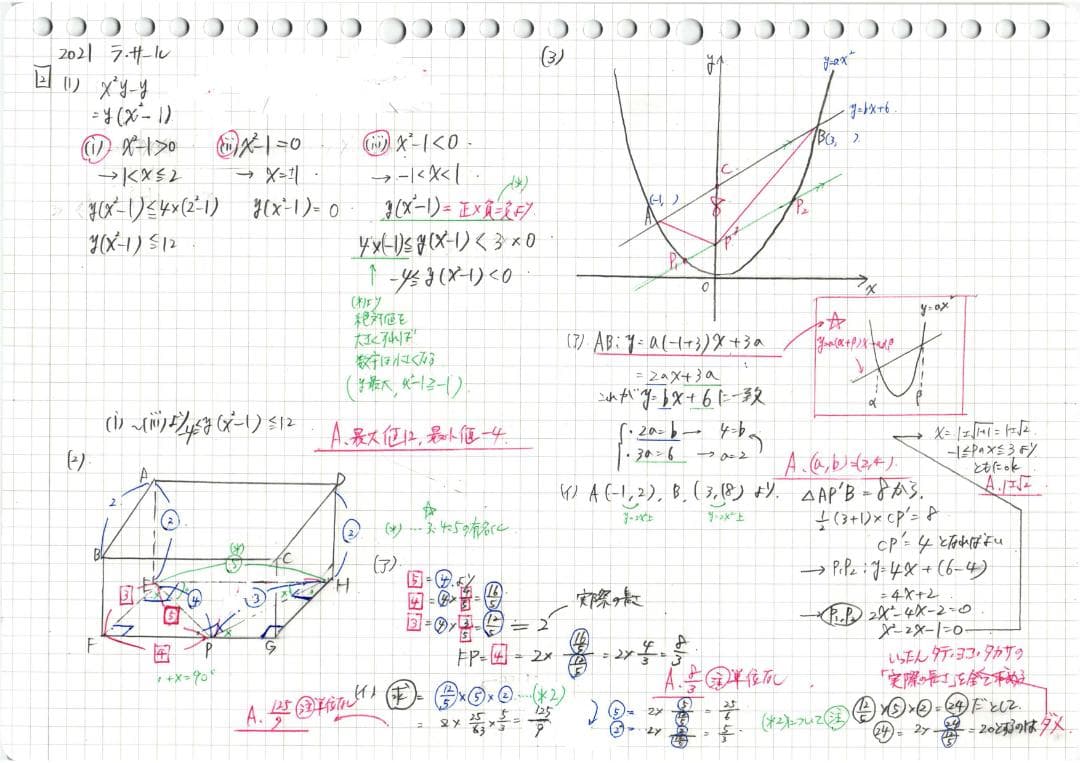 2021 ラ・サール
2
(1) x²y-y
=y(x²-1)
(i) x²-1>0
→1<x≦2
y(x²-1)≦4×(2²-1)
y(x²-1)≦12
(ii) x²-1=0
→ x=±1
y(x²-1)=0
(iii) x²-1<0
→-1<x<1
(*)
y(x²-1)=正×負=負より
4×(-1)≦y(x²-1)<3×0
-4≦y(x²-1)<0
↑
(*)より
絶対値を
大きくすれば
数字は小さくなる
(y最大, x²-1≧-1)
(i)~(iii)より-4≦y(x²-1)≦12
A. 最大値12, 最小値-4
(2)
A
D
2
②
②
B
C
(*)
⑤
E
H
3
④
5
③
×
F
4
P
G
・+×=90°
☆
(*)…3:4:5の有名△
(ア)
5=④より
4=④×4/5=⑯/5
3=④×3/5=⑫/5=2
実際の長さ
FP=4=2×(16/5)/(12/5)=2×4/3=8/3
A. 8/3 注単位なし
(イ) 求=⑫/5×⑤×②…(*2)
A. 125/9 注単位なし
⑤=2×⑤/(12/5)=25/6
②=2×②/(12/5)=5/3
(*2)について注
⑫/5×⑤×②=㉔だとして
㉔=2×㉔/(12/5)=20とするのはダメ
いったんタテ・ヨコ・タカサの
「実際の長さ」を全て求める
(3)
y
y=ax²
y=bx+6
B(3, )
C
(-1, )
A
8
P'
P₂
P₁
O
x
(ア) AB: y=a(-1+3)x+3a
=2ax+3a
これがy=bx+6に一致
・2a=b → 4=b
・3a=6 → a=2
A. (a,b)=(2,4)
☆
y=ax²
y=a(α+β)x-aαβ
α
β
(イ) A(-1,2), B(3,18)より
y=2x²上
y=2x²上
△AP'B=8から
1/2(3+1)×CP'=8
CP'=4となればよい
→P₁P₂: y=4x+(6-4)
=4x+2
→P₁,P₂ 2x²-4x-2=0
x²-2x-1=0
→ x=1±√1+1=1±√2
-1≦Pのx≦3より
ともにok
A. 1±√2